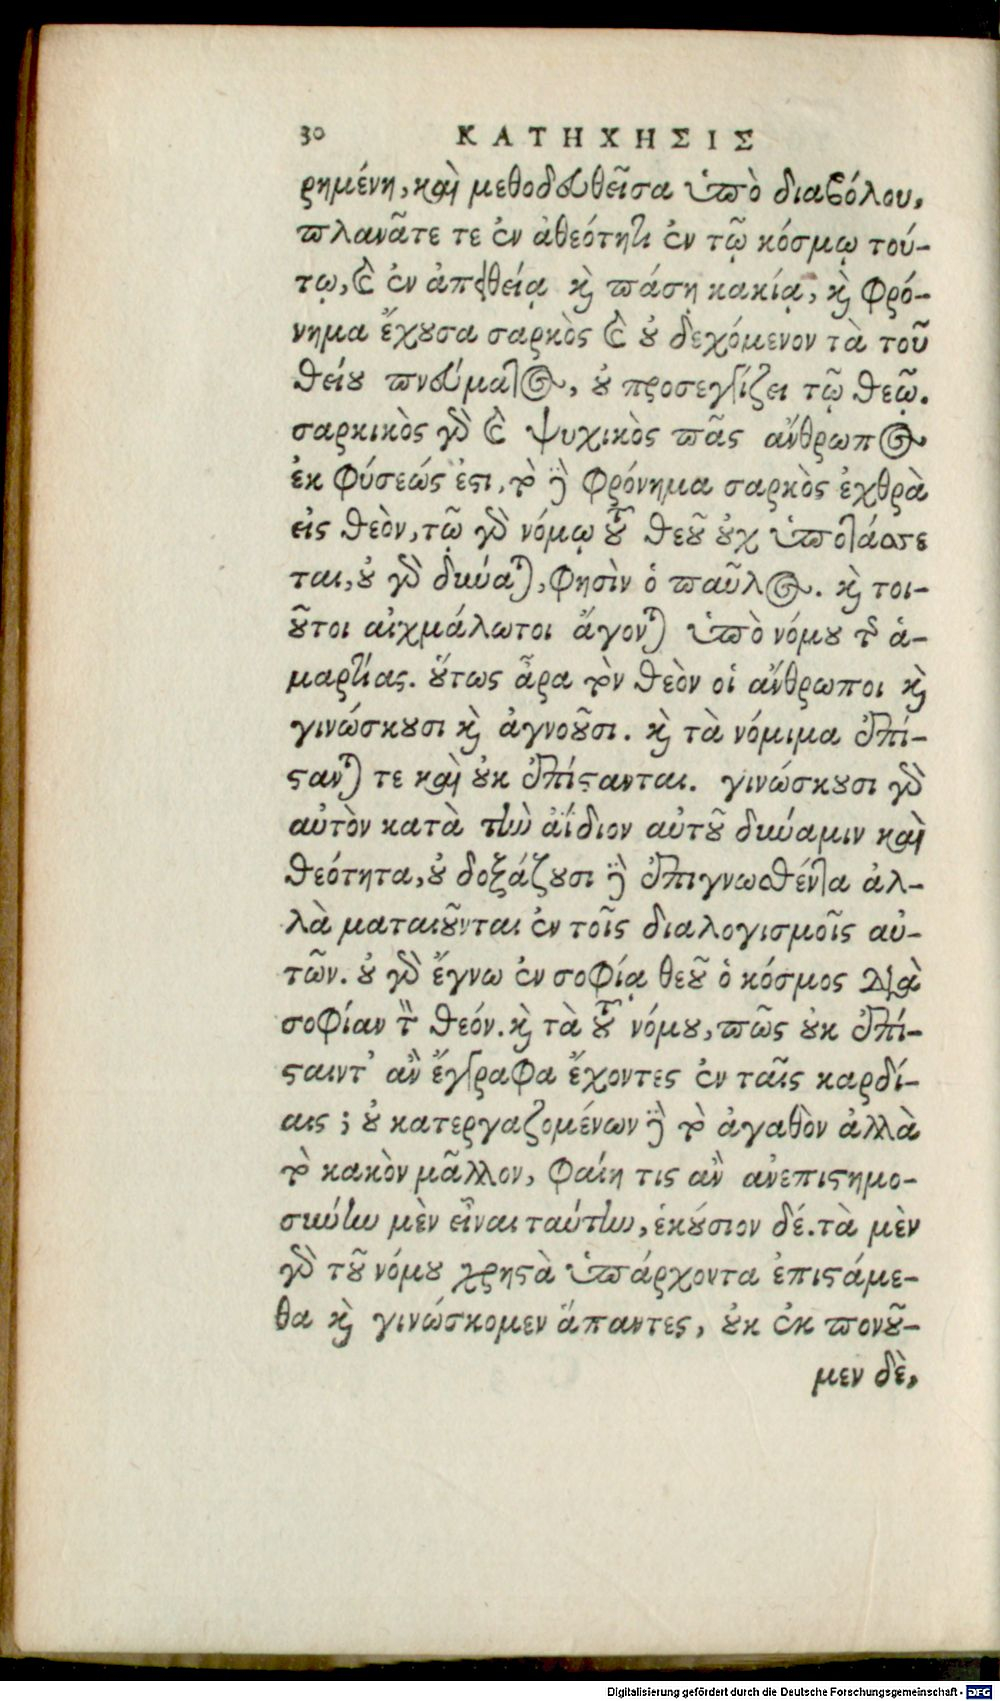 30 ΚΑΤΗΧΗΣΙΣ
ρημένη, καὶ μεθοδευθεῖσα ὑπὸ διαβόλου,
πλανᾶτε τε ἐν ἀθεότητι ἐν τῷ κόσμῳ τού-
τῳ, καὶ ἐν ἀπειθείᾳ καὶ πάσῃ κακίᾳ, καὶ φρό-
νημα ἔχουσα σαρκὸς καὶ οὐ δεχόμενον τὰ τοῦ
θείου πνεύματος, οὐ προσεγγίζει τῷ θεῷ.
σαρκικὸς γὰρ καὶ ψυχικὸς πᾶς ἄνθρωπος
ἐκ φύσεώς ἐστι, τὸ δὲ φρόνημα σαρκὸς ἐχθρὰ
εἰς θεὸν, τῷ γὰρ νόμῳ τοῦ θεοῦ οὐχ ὑποτάσσε
ται, οὐ γὰρ δύναται, φησὶν ὁ παῦλος. καὶ τοι-
οῦτοι αἰχμάλωτοι ἄγονται ὑπὸ νόμου τῆς ἁ-
μαρτίας. οὕτως ἆρα τὸν θεὸν οἱ ἄνθρωποι καὶ
γινώσκουσι καὶ ἀγνοῦσι. καὶ τὰ νόμιμα ἐπί-
στανταί τε καὶ οὐκ ἐπίστανται. γινώσκουσι γὰρ
αὐτὸν κατὰ τὴν ἀΐδιον αὐτοῦ δύναμιν καὶ
θεότητα, οὐ δοξάζουσι δὲ ἐπιγνωσθέντα ἀλ-
λὰ ματαιοῦνται ἐν τοῖς διαλογισμοῖς αὐ-
τῶν. οὐ γὰρ ἔγνω ἐν σοφίᾳ θεοῦ ὁ κόσμος διὰ
σοφίαν τὸν θεόν. καὶ τὰ τοῦ νόμου, πῶς οὐκ ἐπί-
σταιντ' ἂν ἔγγραφα ἔχοντες ἐν ταῖς καρδί-
αις; οὐ κατεργαζομένων δὲ τὸ ἀγαθὸν ἀλλὰ
τὸ κακὸν μᾶλλον, φαίη τις ἂν ἀνεπιστημο-
σύνην μὲν εἶναι ταύτην, ἑκούσιον δέ. τὰ μὲν
γὰρ τοῦ νόμου χρηστὰ ὑπάρχοντα ἐπιστάμε-
θα καὶ γινώσκομεν ἅπαντες, οὐκ ἐκπονοῦ-
μεν δὲ,
Digitalisierung gefördert durch die Deutsche Forschungsgemeinschaft - DFG